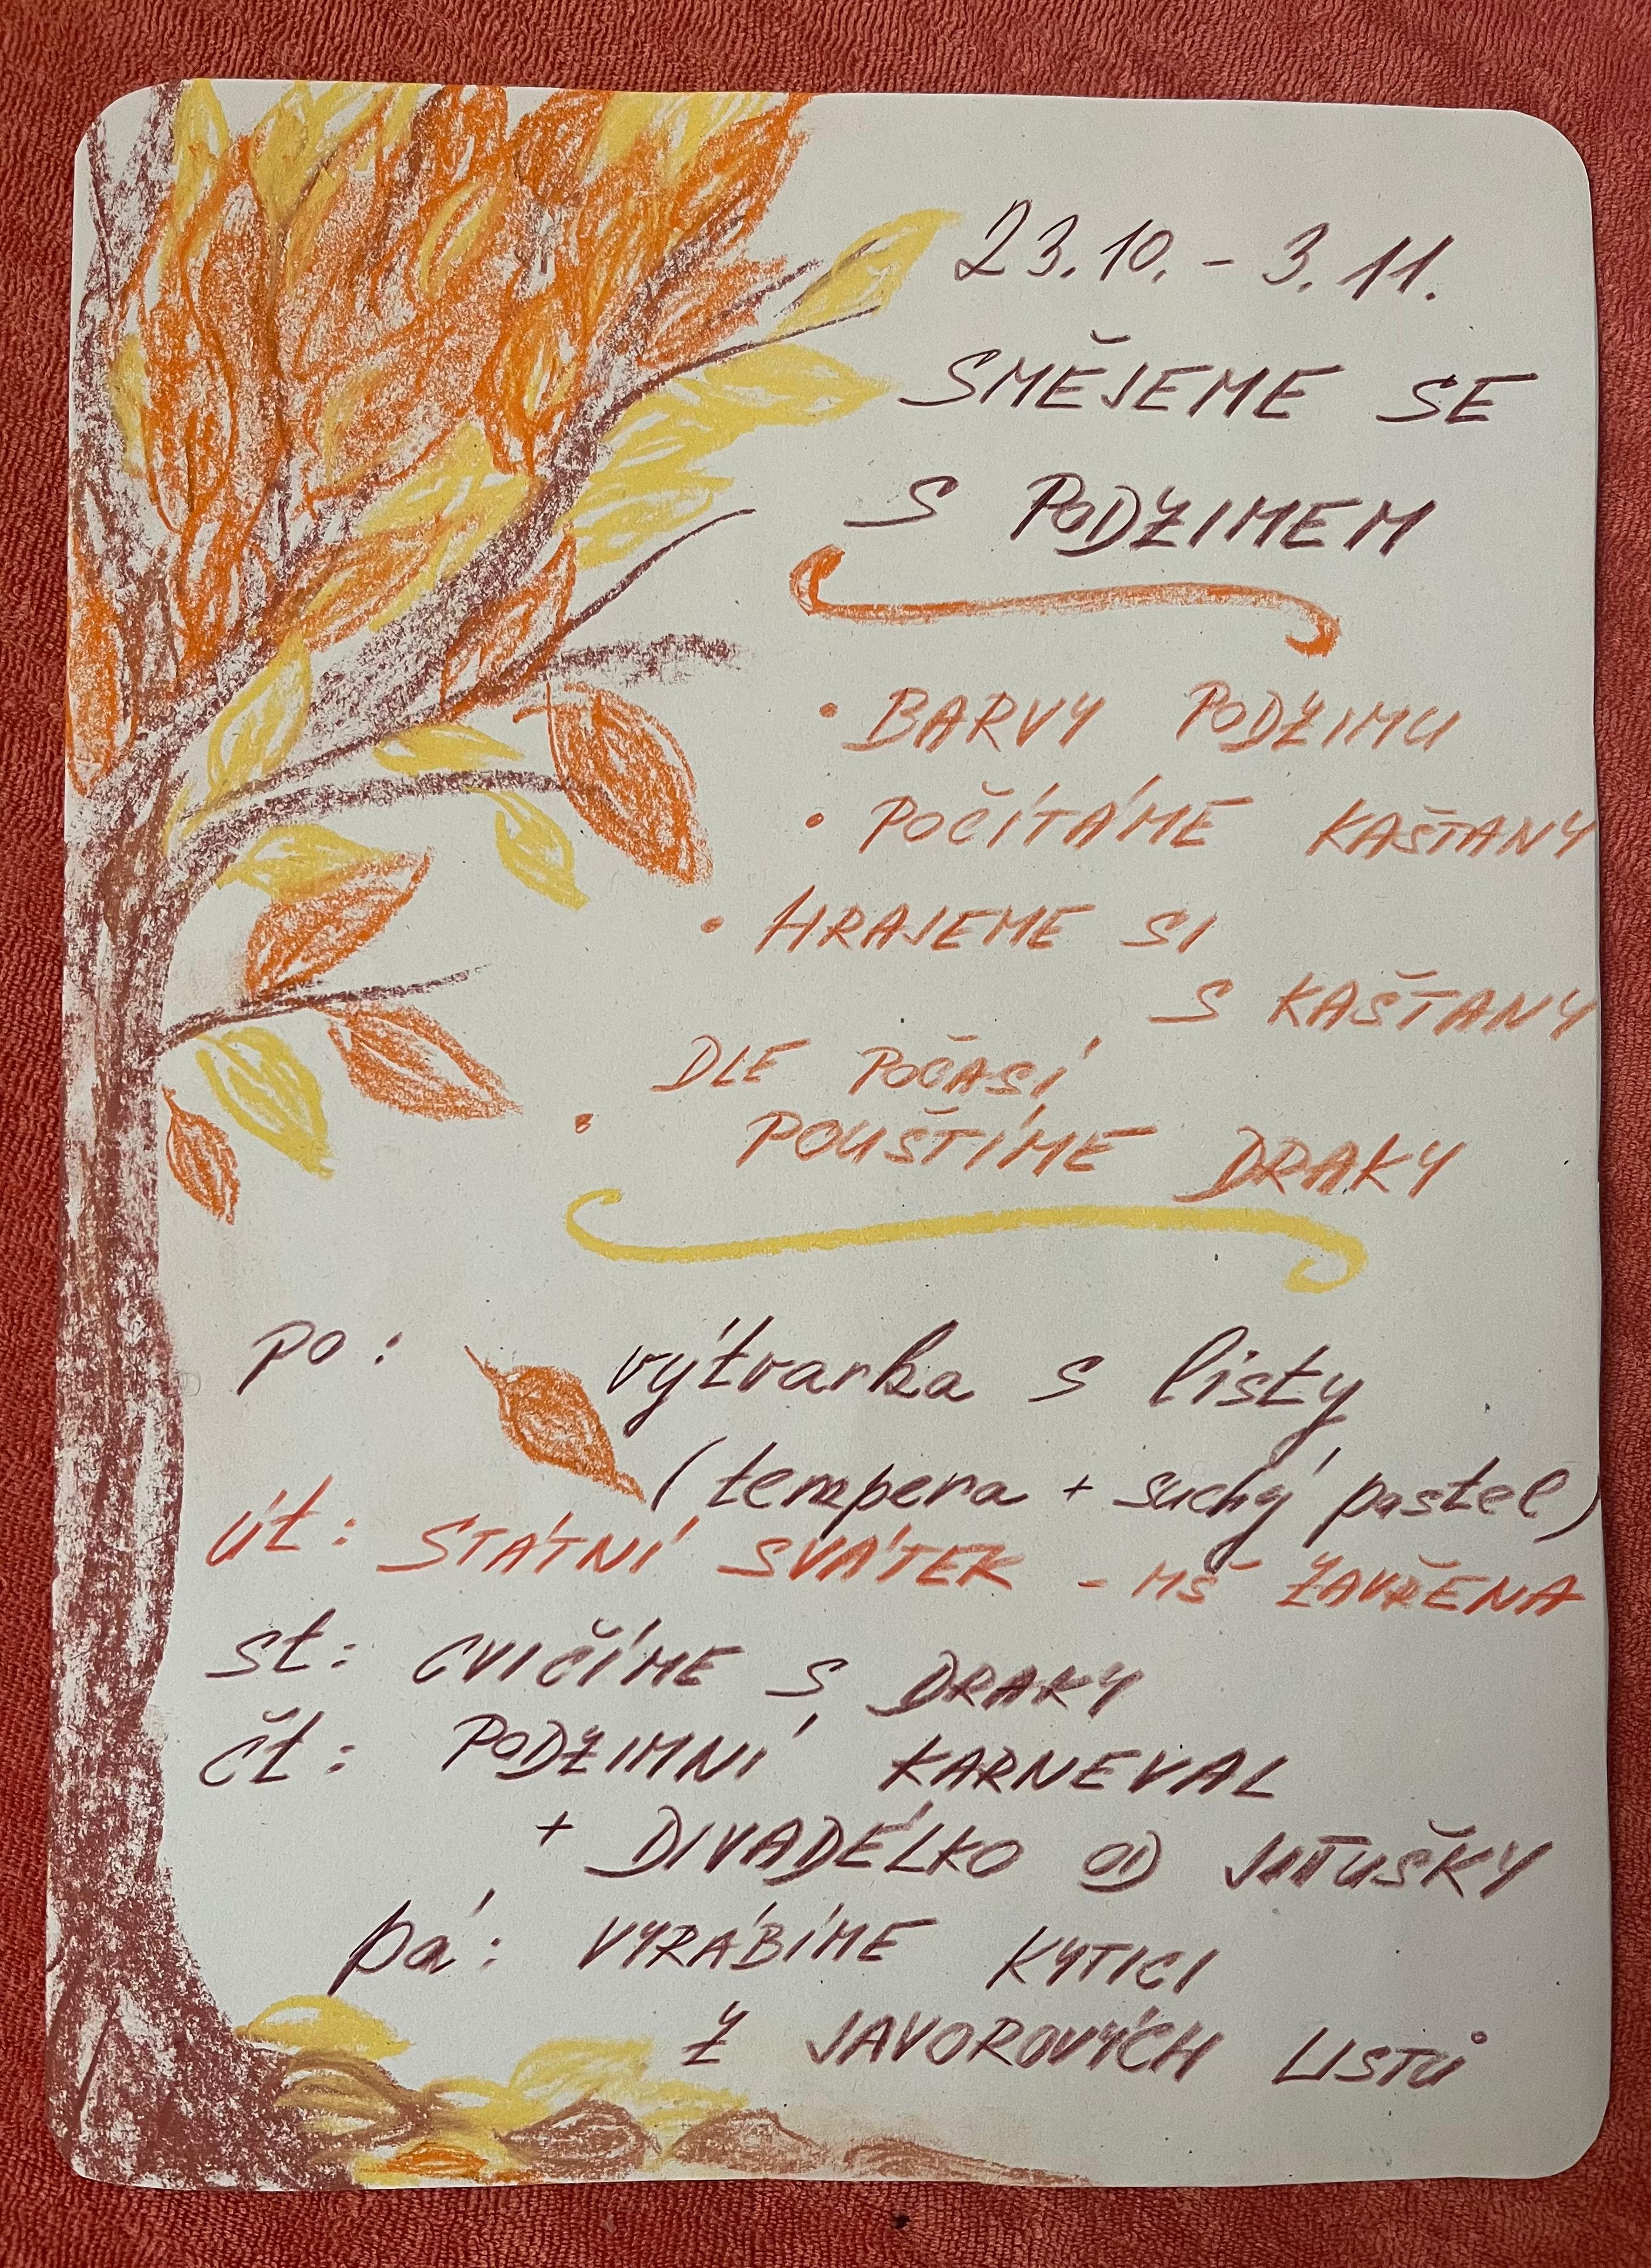 23.10. - 3.11.
SMĚJEME SE
S PODZIMEM
• BARVY PODZIMU
• POČÍTÁME KAŠTANY
• HRAJEME SI
S KAŠTANY
DLE POČASÍ
• POUŠTÍME DRAKY
po: výtvarka s listy
(tempera + suchý pastel)
út: STÁTNÍ SVÁTEK - MŠ ZAVŘENA
st: CVIČÍME S DRAKY
čt: PODZIMNÍ KARNEVAL
+ DIVADÉLKO OD JITUŠKY
pá: VYRÁBÍME KYTICI
Z JAVOROVÝCH LISTŮ